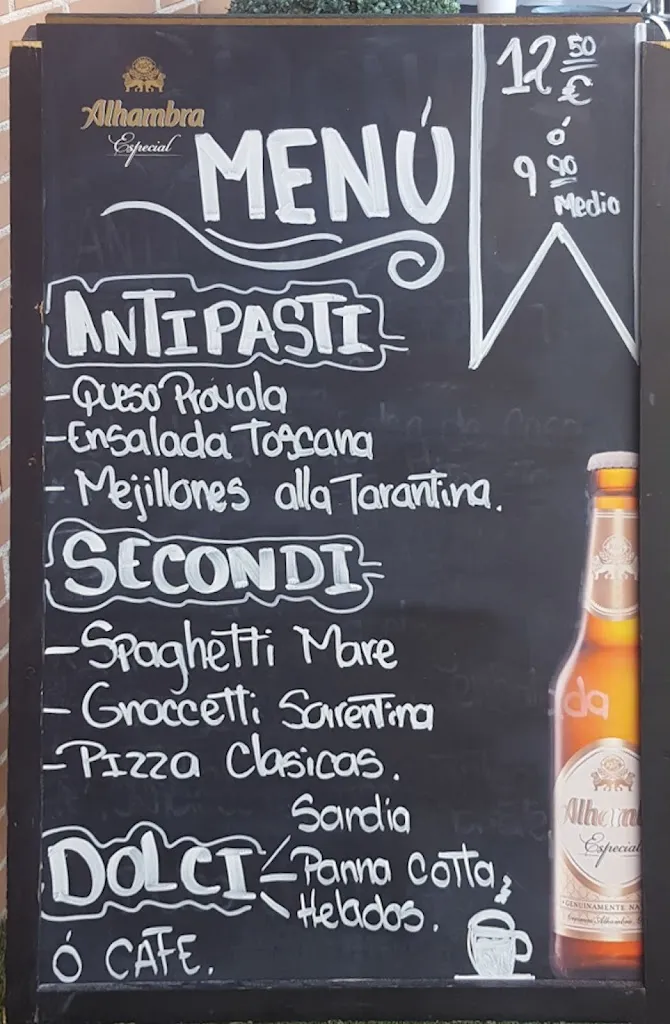 Alhambra
Especial
MENÚ
12 50 €
ó
9 90
Medio
ANTIPASTI
- Queso Provola
- Ensalada Toscana
- Mejillones alla Tarantina.
SECONDI
- Spaghetti Mare
- Gnoccetti Sorentina
- Pizza Clasicas.
DOLCI
Sandia
Panna Cotta,
Helados.
Ó CAFE.
Alhambra
Especial